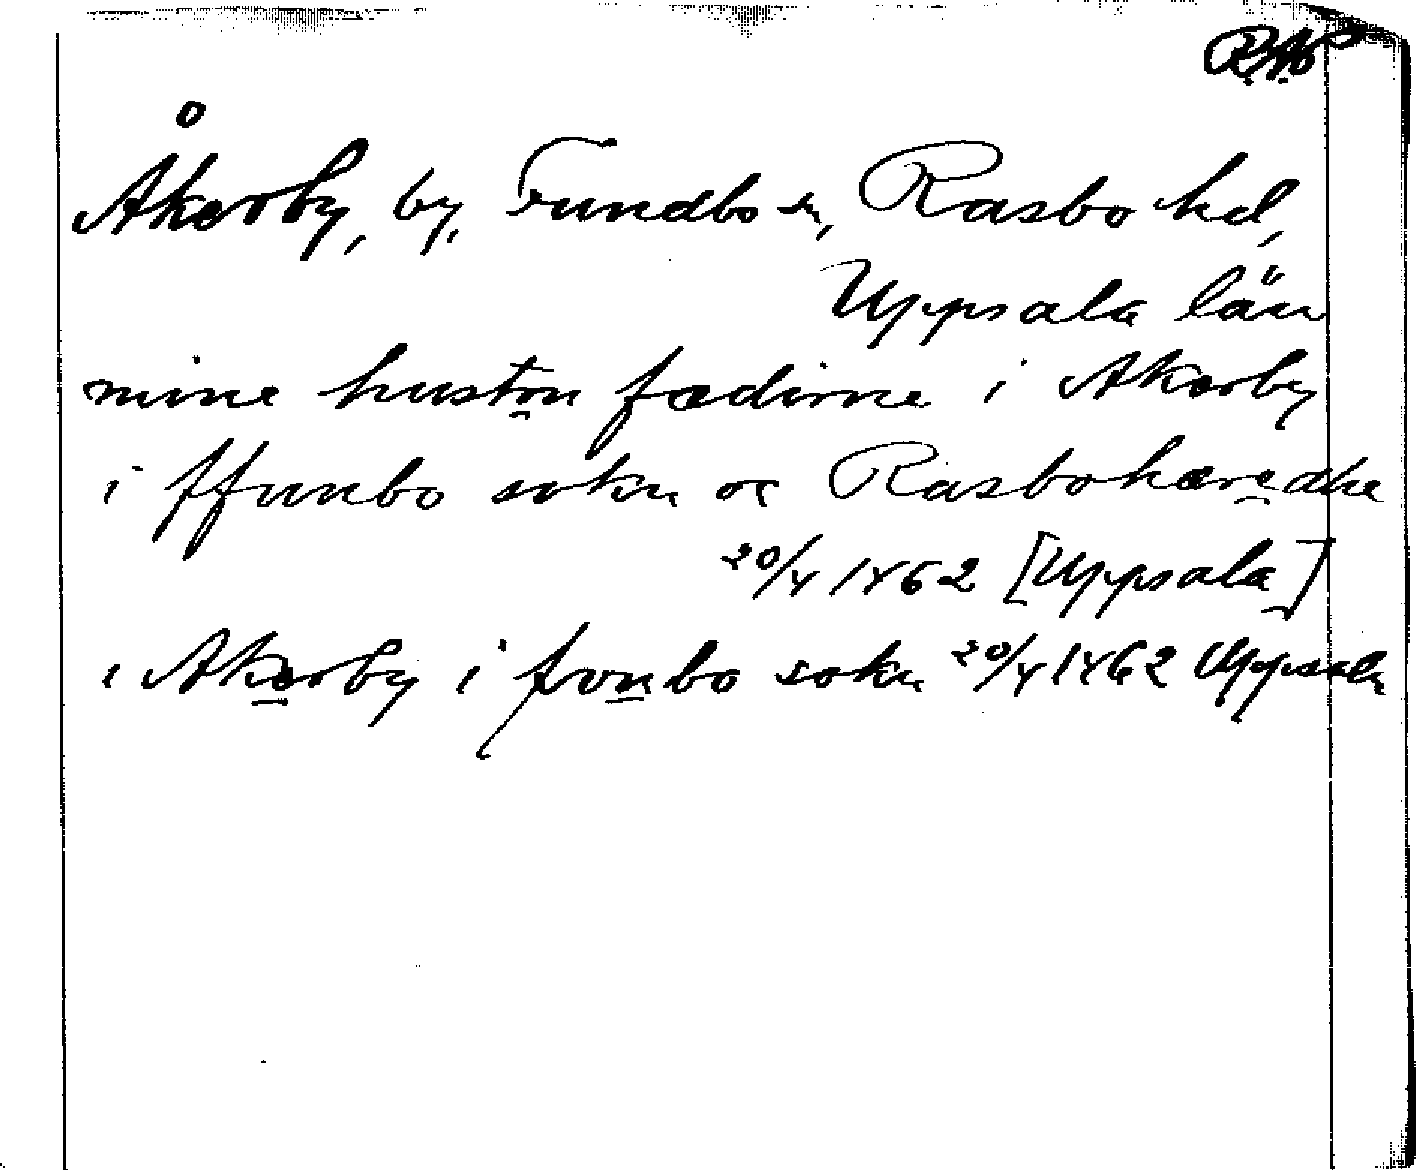 RAp
Åkerby, by, Fundbo sn, Rasbo hd,
Uppsala län
mine hustrv fædirne i Akerby
i ffunbo sokn oc Rasbohæredhe
20/4 1462 [Uppsala]
i Akerby i fvnbo sokn 20/4 1462 Uppsala